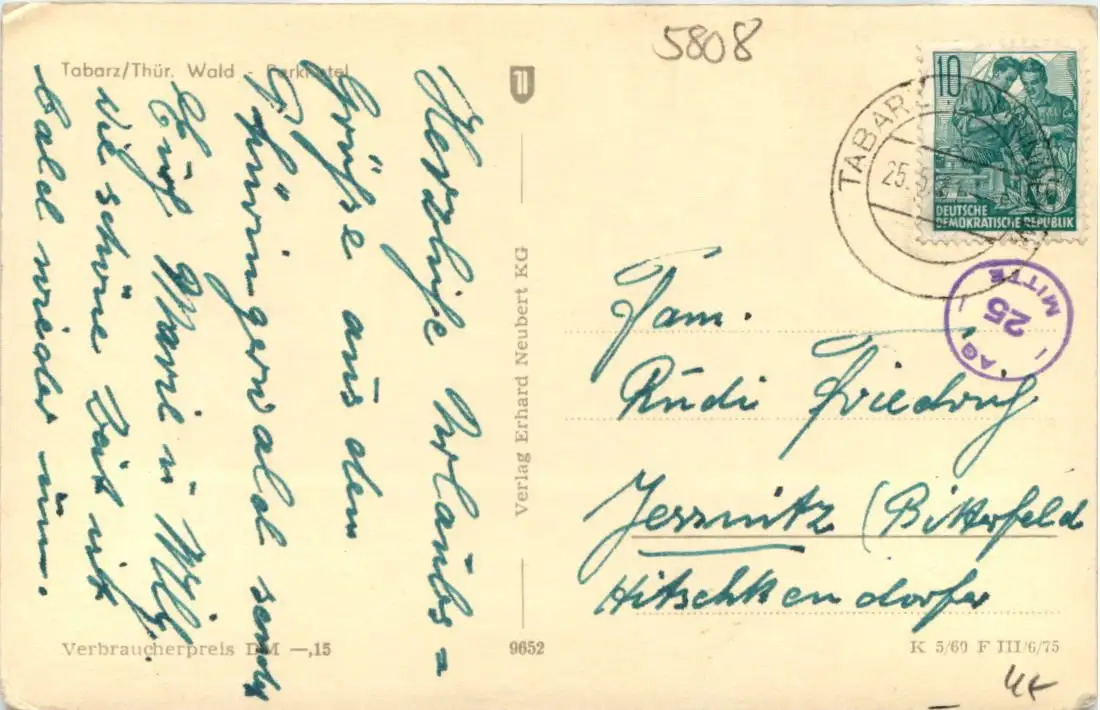 5808
Tabarz/Thür. Wald - Parkhotel
10
DEUTSCHE
DEMOKRATISCHE REPUBLIK
TABARZ
25.5.
25
MITTE
Herzliche Urlaubs=
Grüße aus dem
Thüringerwald sendet
Euch Marie u Willy.
die schöne Zeit ist
bald wieder um.
Verlag Erhard Neubert KG
Fam.
Rudi Friedrich
Jessnitz (Bitterfeld
Hitschkendorfer
Verbraucherpreis DM —,15
9652
K 5/60 F III/6/75